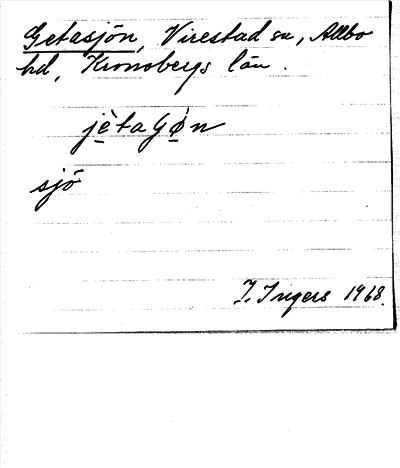 Getasjön, Virestad sn, Allbo
hd, Kronobergs län.
jètaɡø̀n
sjö
I. Ingers 1968.